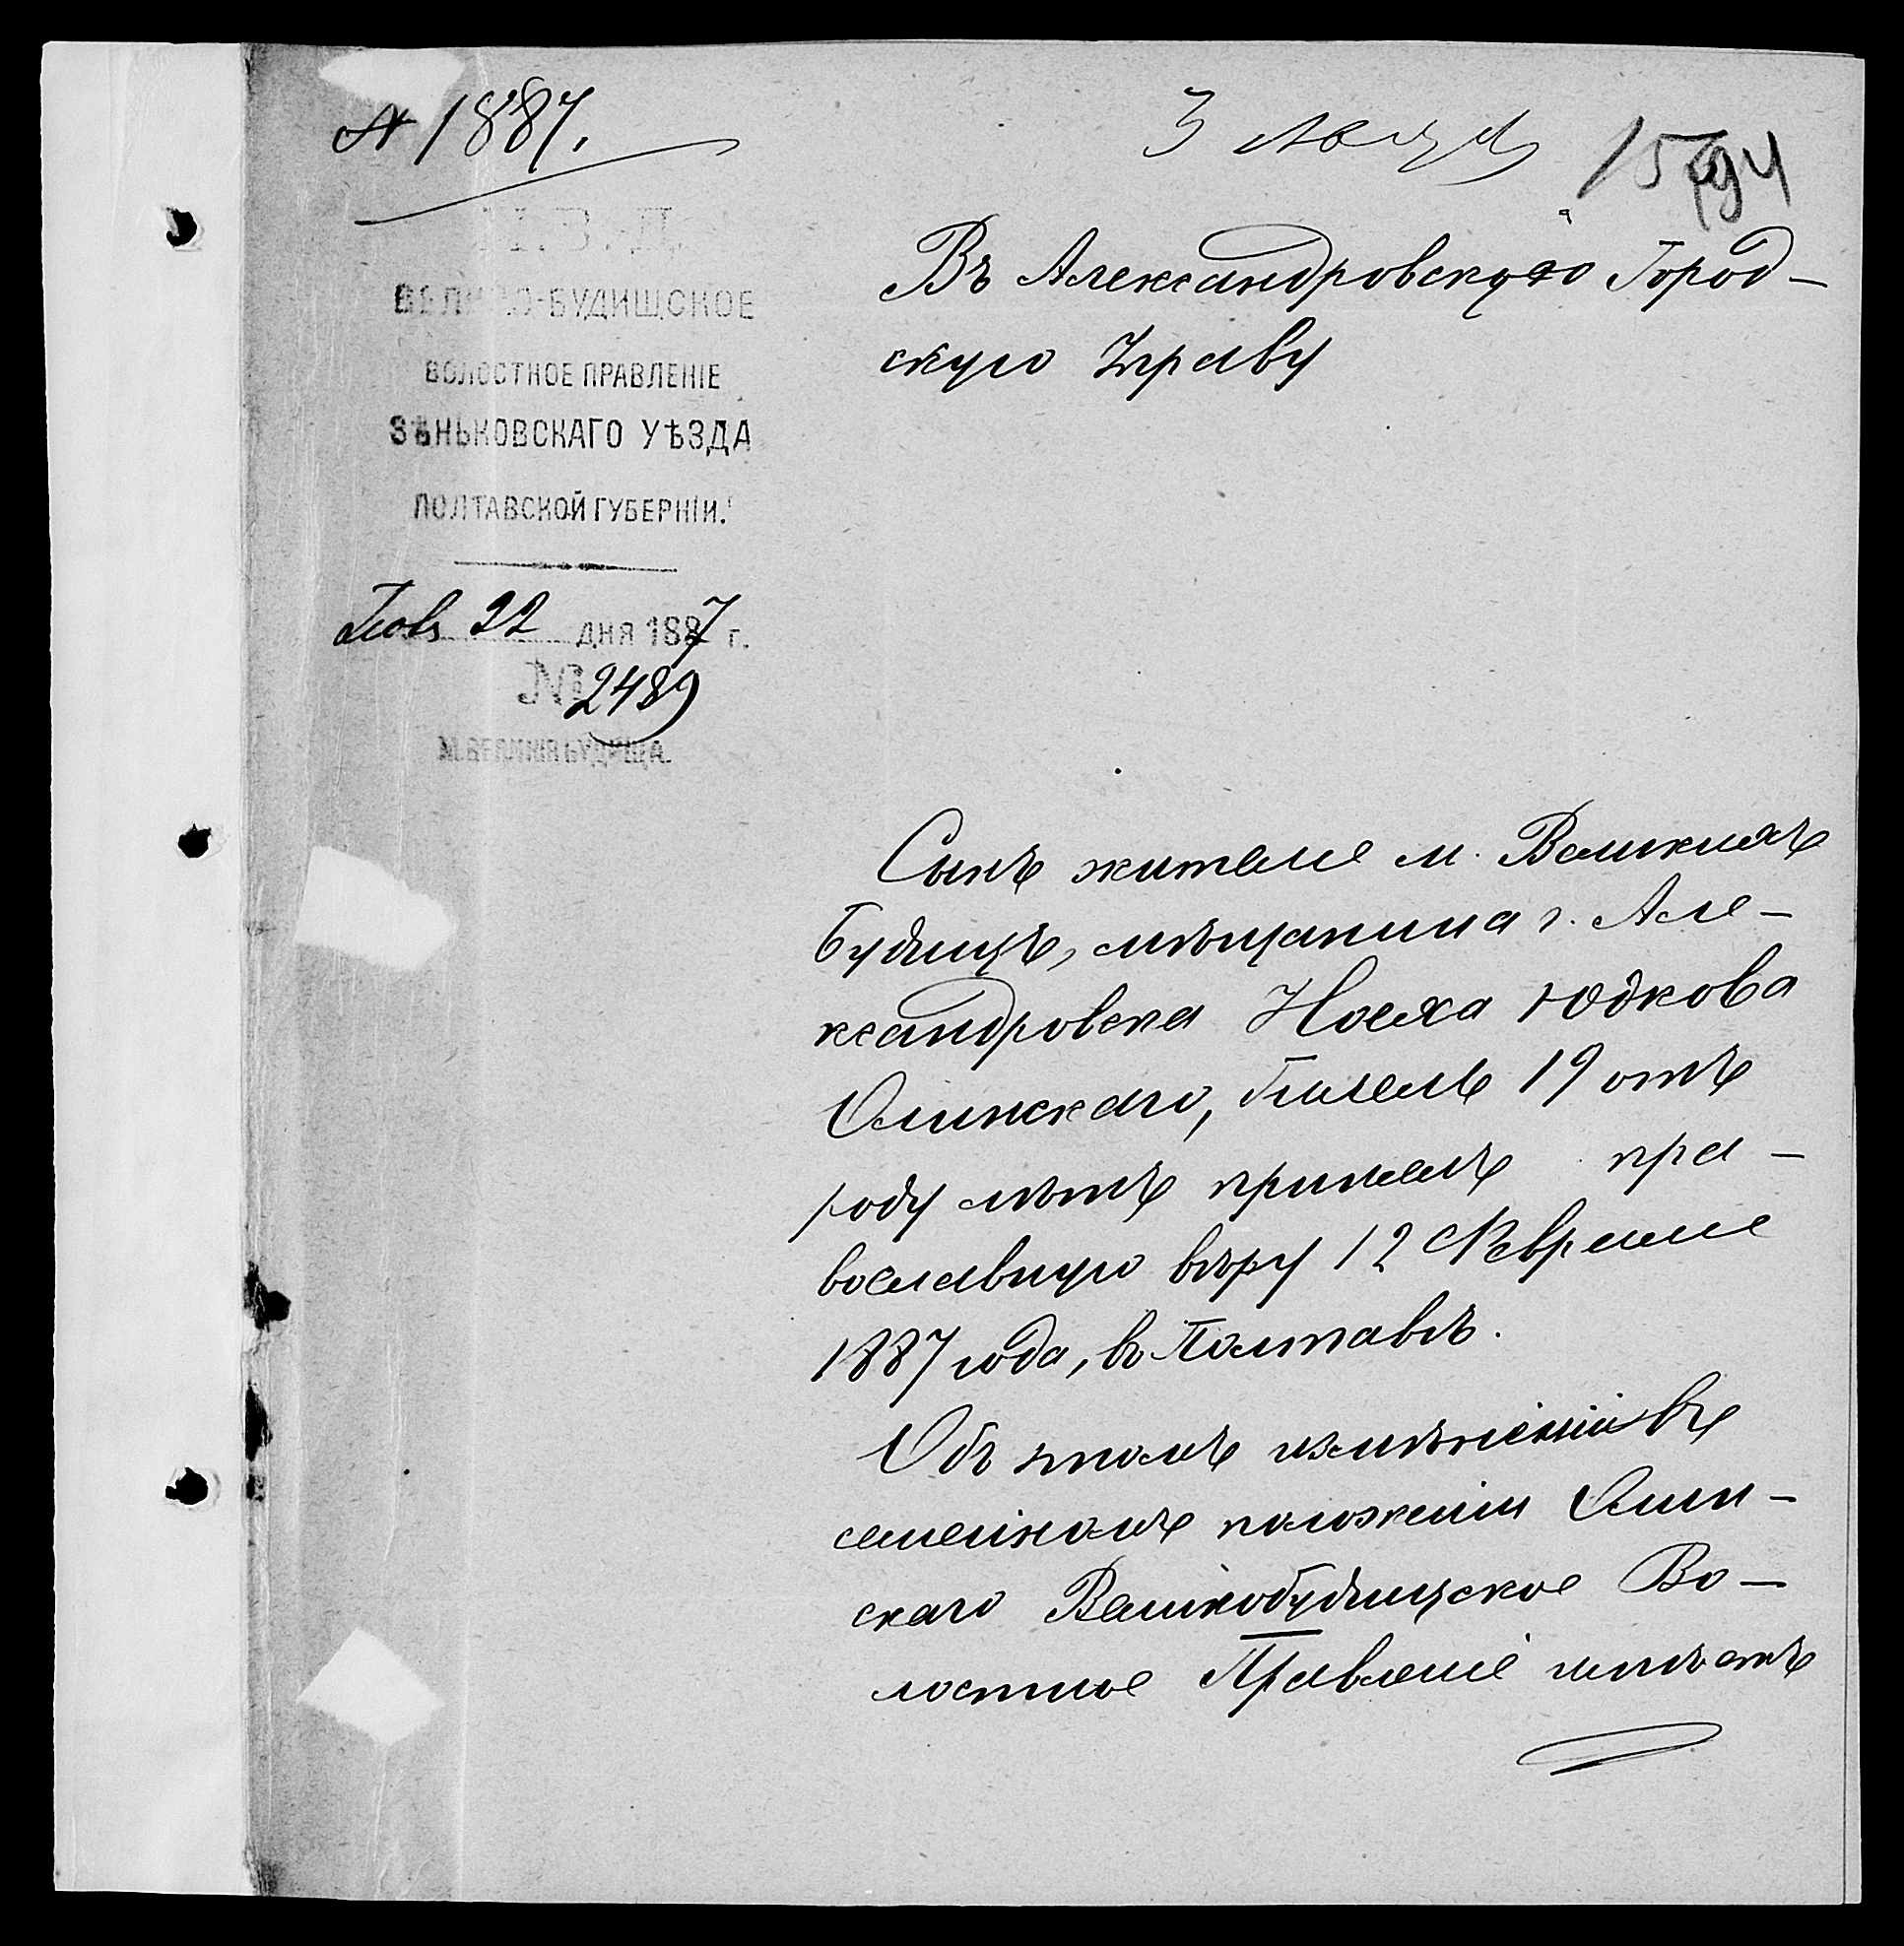 № 1887.
3 Авг.
15
94
М. В. Д.
ВЕЛИКО-БУДИЩСКОЕ
ВОЛОСТНОЕ ПРАВЛЕНІЕ
ЗѢНЬКОВСКАГО УѢЗДА
ПОЛТАВСКОЙ ГУБЕРНІИ.
22 ДНЯ 1887 г.
№ 2489
М. ВЕЛИКІЯ БУДИЩА.
Въ Александровскую Город-
скую Управу
Сынъ жителя м. Великихъ
Будищъ, мѣщанина г. Але-
ксандровска Ноаха Юдкова
Олинскаго, 19 отъ
роду лѣтъ принялъ пра-
вославную вѣру 12 Февраля
1887 года, въ Полтавѣ.
Объ этомъ измѣненіи въ
семейномъ положеніи Олин-
скаго Великобудищское Во-
лостное Правленіе имѣетъ